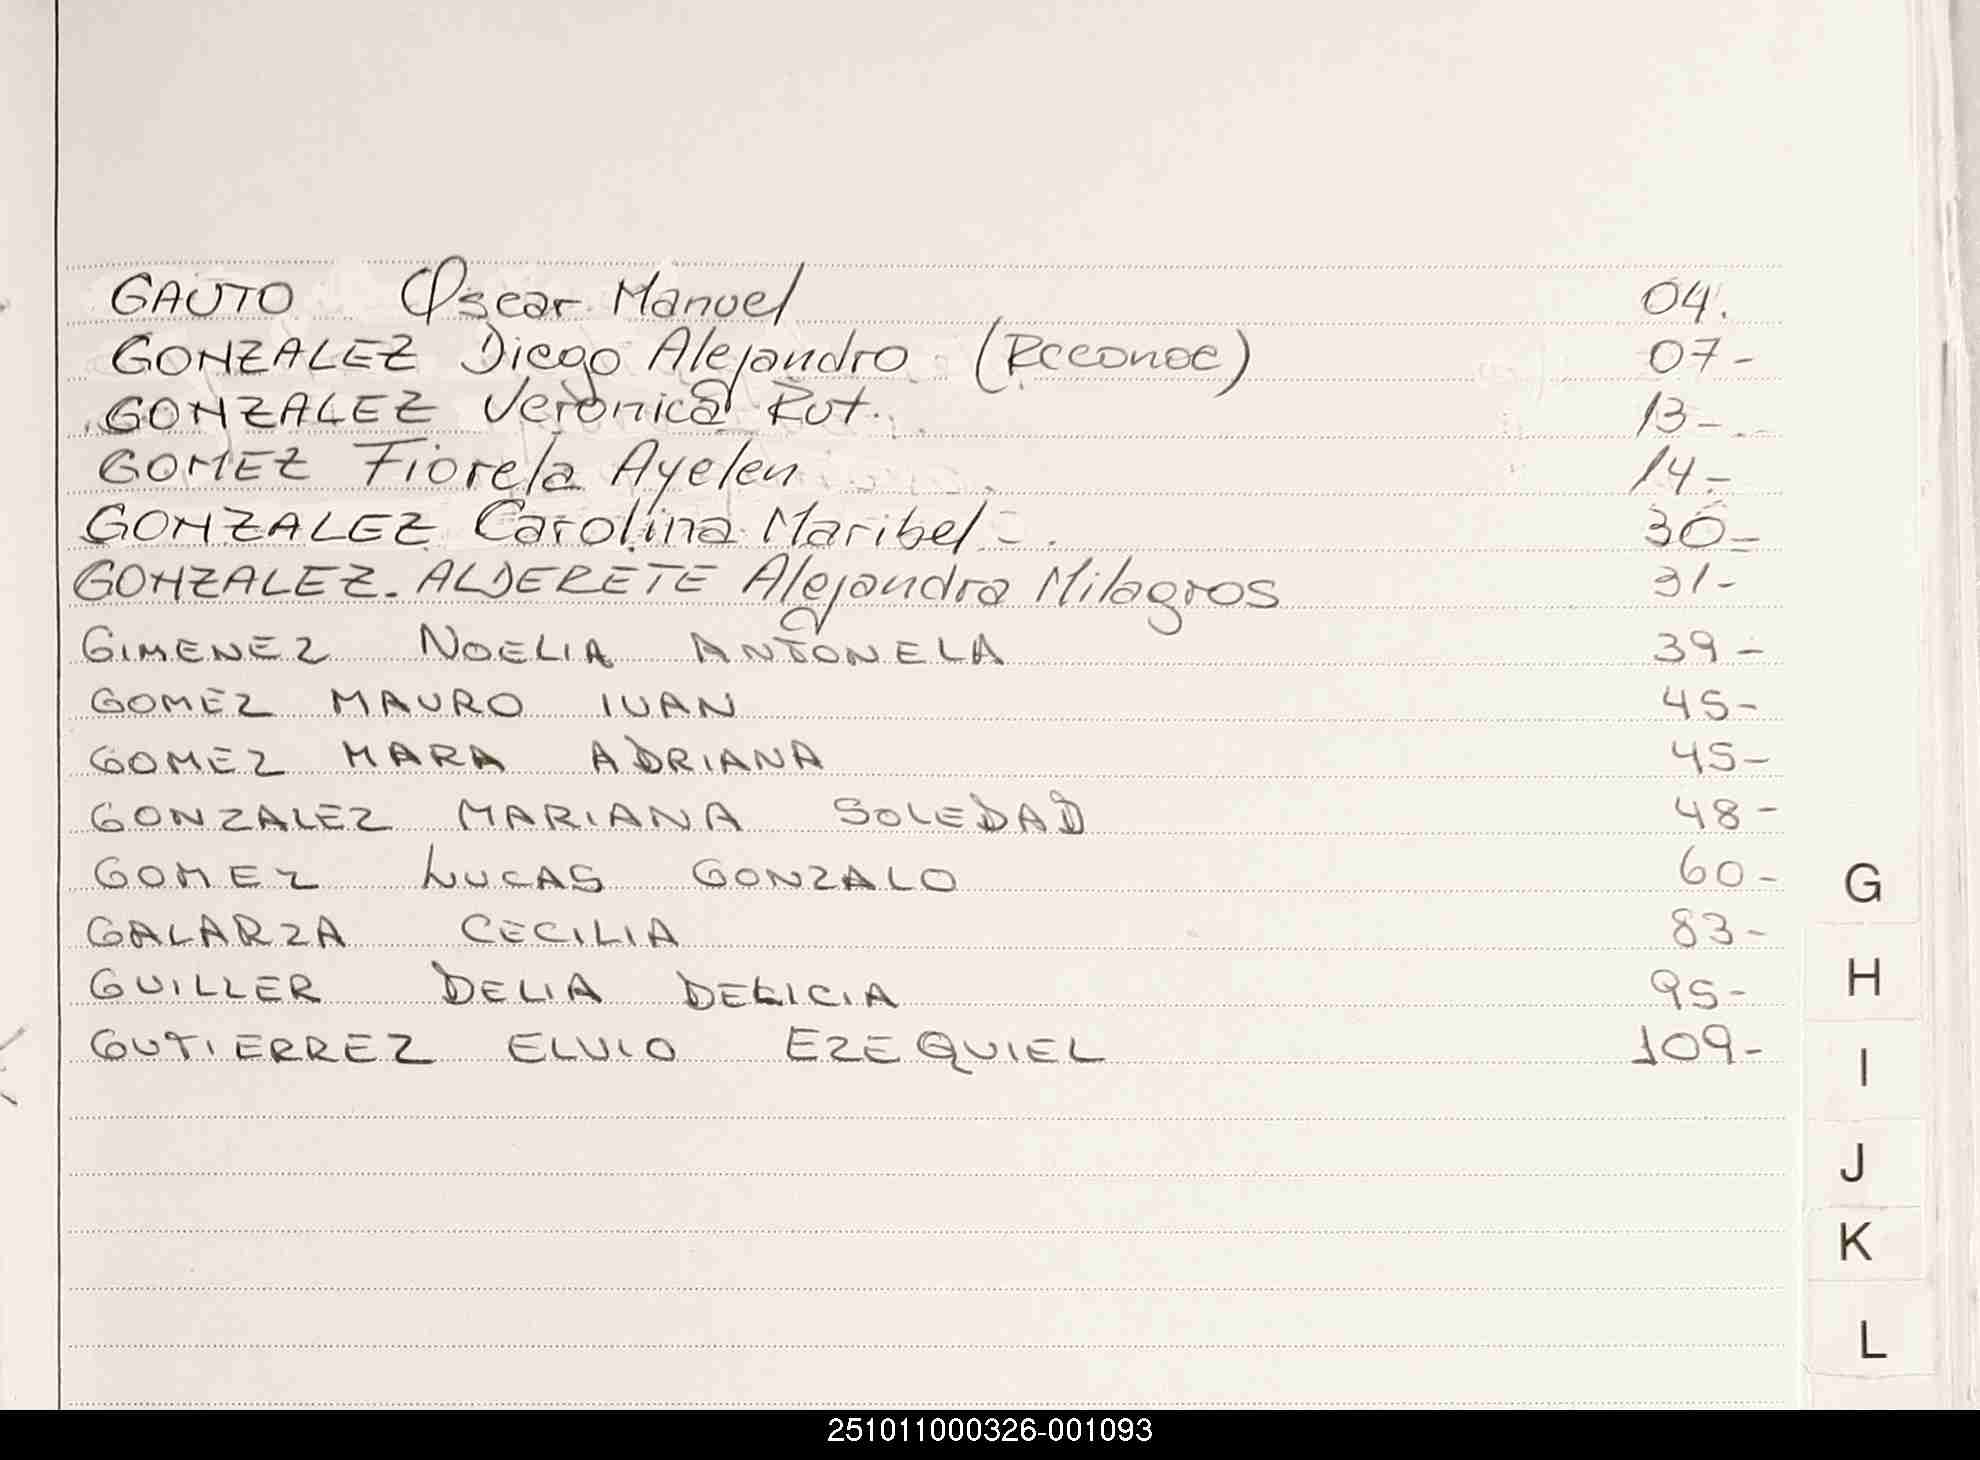 GAUTO Oscar Manuel 04.
GONZALEZ Diego Alejandro (Reconoc) 07-
GONZALEZ Veronica Rut. 13-
GOMEZ Fiorela Ayelen 14-
GONZALEZ Carolina Maribel - . 30-
GONZALEZ-ALDERETE Alejandra Milagros 31-
GIMENEZ NOELIA ANTONELA 39-
GOMEZ MAURO IVAN 45-
GOMEZ MARA ADRIANA 45-
GONZALEZ MARIANA SOLEDAD 48-
GOMEZ LUCAS GONZALO 60-
GALARZA CECILIA 83-
GUILLER DELIA DELICIA 95-
GUTIERREZ ELVIO EZEQUIEL 109-
G
H
I
J
K
L
251011000326-001093